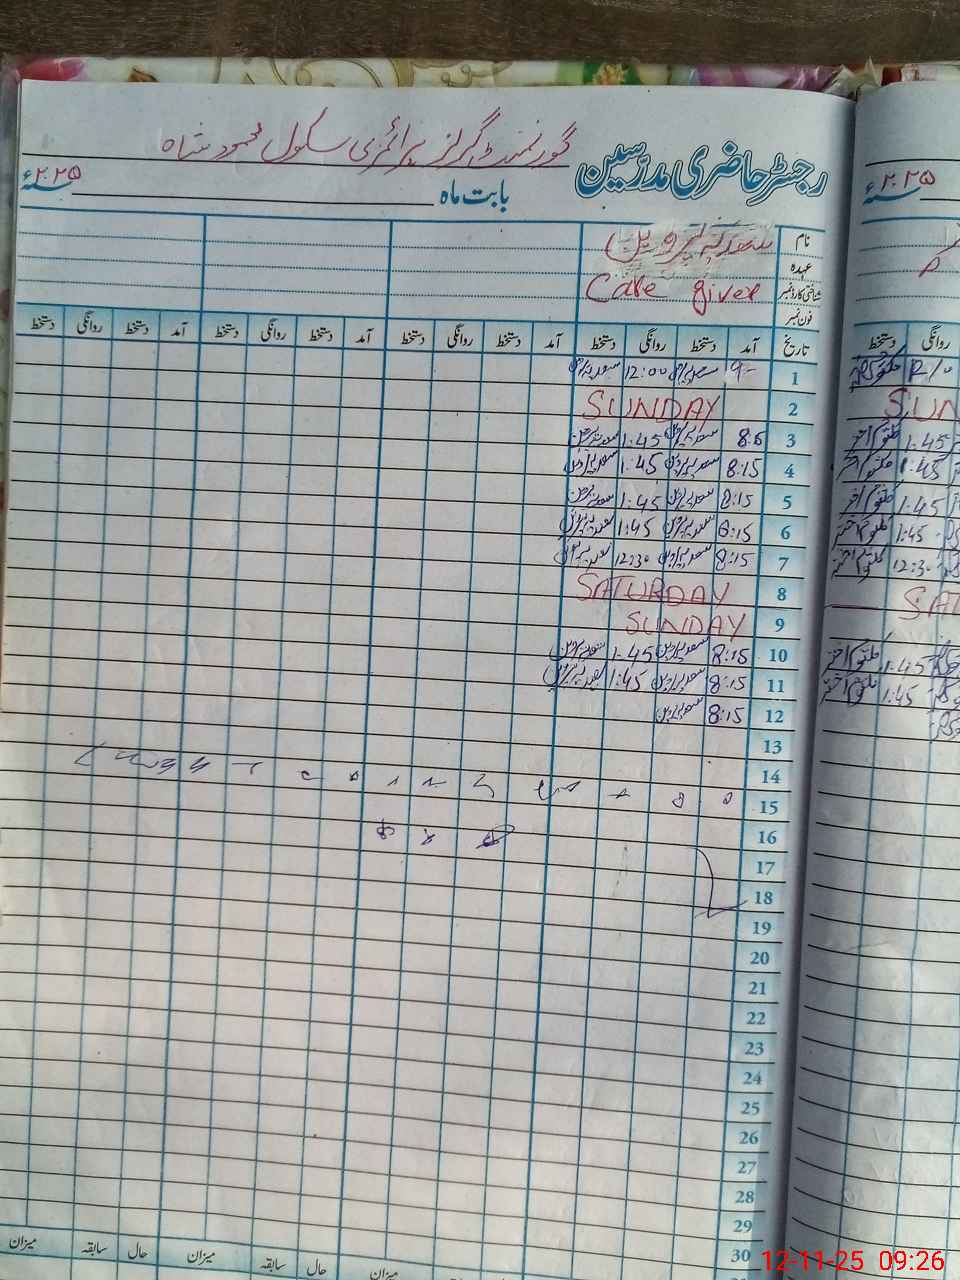 گورنمنٹ گرلز پرائمری سکول محمود شاہ
رجسٹر حاضری مدرسین
بابت ماہ
۲۰۲۵ سنہ ء
۲۰۲۵ سنہ ء
نام سعدیہ پروین
عہدہ
شناختی کارڈ نمبر Care giver
فون نمبر
تاریخ آمد دستخط روانگی دستخط آمد دستخط روانگی دستخط آمد دستخط روانگی دستخط آمد دستخط روانگی دستخط
1 9- سعدیہ پروین 12:00 سعدیہ پروین
2 SUNDAY
3 سعدیہ پروین 1:45 سعدیہ پروین
4 8:15 سعدیہ پروین 1:45 سعدیہ پروین
5 8:15 سعدیہ پروین 1:45 سعدیہ پروین
6 8:15 سعدیہ پروین 1:45 سعدیہ پروین
7 8:15 سعدیہ پروین 12:30 سعدیہ پروین
8 SATURDAY
9 SUNDAY
10 8:15 سعدیہ پروین 1:45 سعدیہ پروین
11 8:15 سعدیہ پروین 1:45 سعدیہ پروین
12 8:15 سعدیہ پروین
13
14
15
16
17
18
19
20
21
22
23
24
25
26
27
28
29
30
میزان حال سابقہ میزان حال سابقہ میزان
روانگی دستخط
کلثوم اختر
SUN
1:45 کلثوم اختر
1:45 کلثوم اختر
1:45 کلثوم اختر
1:45 کلثوم اختر
12:30 کلثوم اختر
SAT
1:45 کلثوم اختر
1:45 کلثوم اختر
12-11-25 09:26